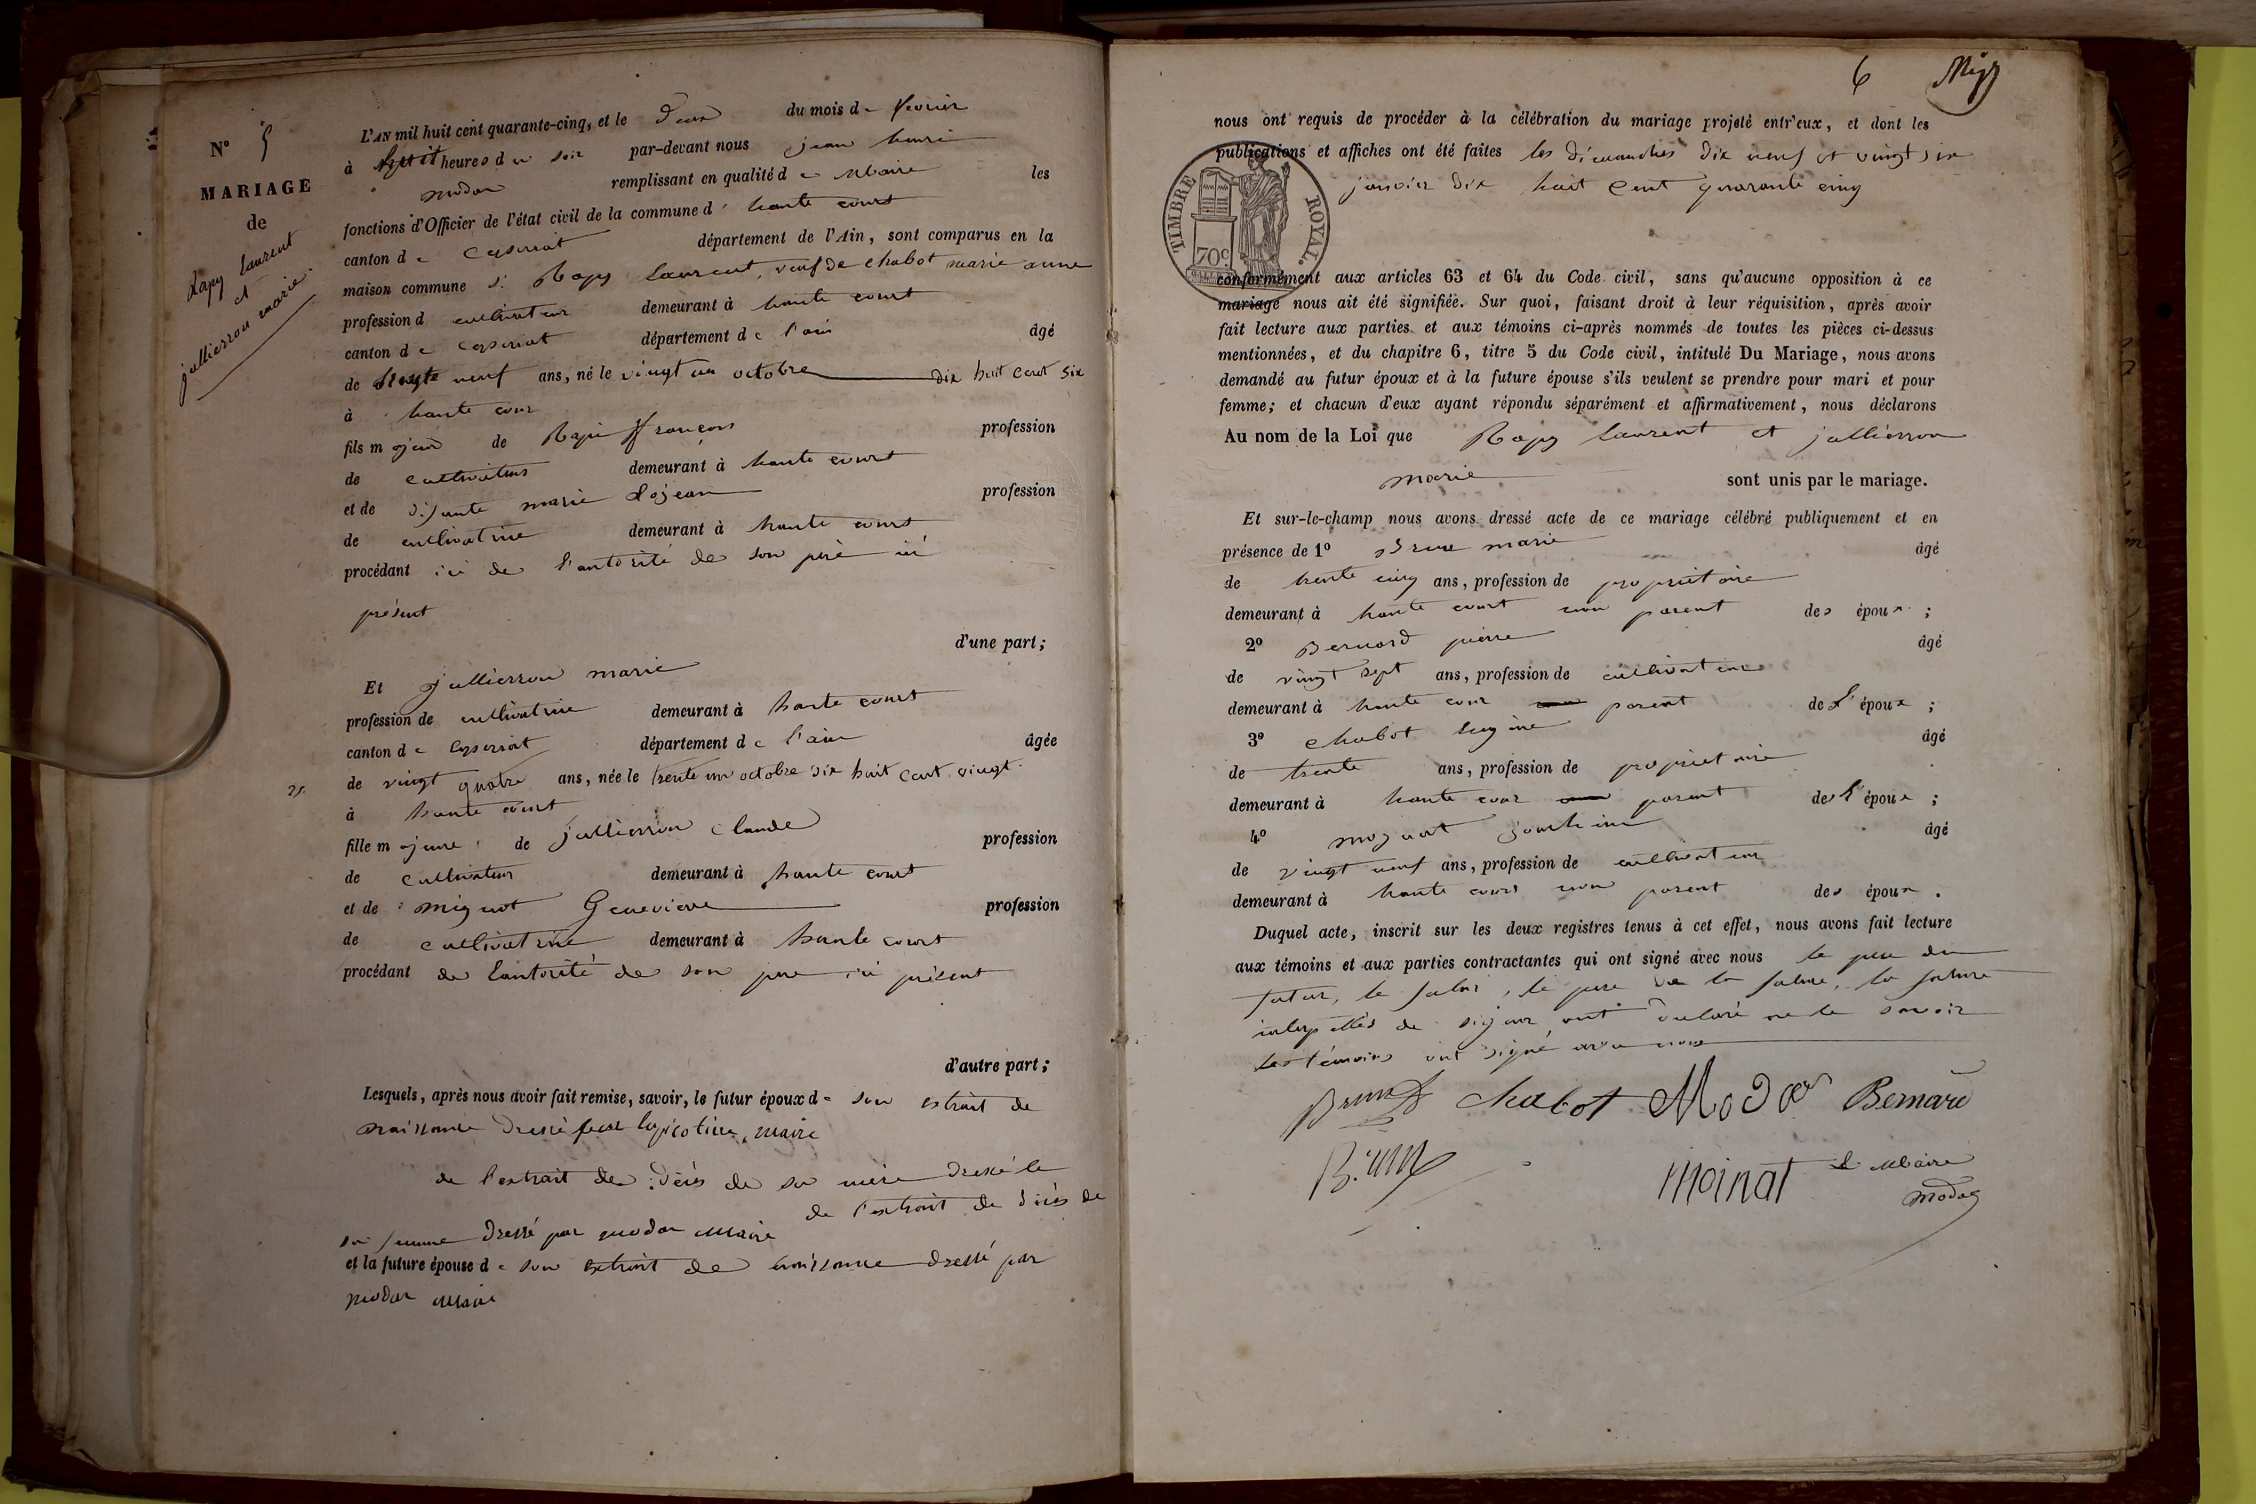 N° 5
MARIAGE
de
Rapy laurent
et
jullierron marie
L'AN mil huit cent quarante-cinq, et le deux du mois de fevrier
à huit heures du soir par-devant nous jean henri
modas remplissant en qualité de Maire les
fonctions d'Officier de l'état civil de la commune d haute court
canton de Ceyseriat département de l'Ain, sont comparus en la
maison commune Rapy laurent, veuf de chabot marie anne
profession d cultivateur demeurant à haute court
canton de ceyseriat département de l'ain âgé
de trente neuf ans, né le vingt un octobre dix huit cent six
à haute cour
fils majeur de Rapi françois profession
de cultivateur demeurant à haute court
et de défunte marie profession
de cultivatrice demeurant à haute court
procédant ici de l'autorité de son père ici
présent
d'une part;
Et jullierron marie
profession de cultivatrice demeurant à haute court
canton de ceyseriat département de l'ain âgée
de vingt quatre ans, née le trente un octobre dix huit cent vingt
à haute court
fille majeure de jullierron claude profession
de cultivateur demeurant à haute court
et de mignot Genevieve profession
de cultivatrice demeurant à haute court
procédant de l'autorité de son père ici présent
d'autre part;
Lesquels, après nous avoir fait remise, savoir, le futur époux de son extrait de
naissance dressé par maire
de l'extrait de décès de sa mère dressé le
de l'extrait de décès de
sa femme dressé par modas maire
et la future épouse de son extrait de naissance dressé par
modas maire
6
nous ont requis de procéder à la célébration du mariage projeté entr'eux, et dont les
publications et affiches ont été faites les dimanches dix neuf et vingt six
janvier dix huit cent quarante cinq
TIMBRE ROYAL.
70c
conformément aux articles 63 et 64 du Code civil, sans qu'aucune opposition à ce
mariage nous ait été signifiée. Sur quoi, faisant droit à leur réquisition, après avoir
fait lecture aux parties et aux témoins ci-après nommés de toutes les pièces ci-dessus
mentionnées, et du chapitre 6, titre 5 du Code civil, intitulé Du Mariage, nous avons
demandé au futur époux et à la future épouse s'ils veulent se prendre pour mari et pour
femme; et chacun d'eux ayant répondu séparément et affirmativement, nous déclarons
Au nom de la Loi que Rapy laurent et jullierron
marie sont unis par le mariage.
Et sur-le-champ nous avons dressé acte de ce mariage célébré publiquement et en
présence de 1° marie âgé
de trente cinq ans, profession de propriétaire
demeurant à haute court non parent des époux ;
2° Bernard pierre âgé
de vingt sept ans, profession de cultivateur
demeurant à haute cour parent de l'époux ;
3° chabot âgé
de trente ans, profession de propriétaire
demeurant à haute cour parent de l'époux ;
4° âgé
de vingt neuf ans, profession de cultivateur
demeurant à haute court non parent des époux.
Duquel acte, inscrit sur les deux registres tenus à cet effet, nous avons fait lecture
aux témoins et aux parties contractantes qui ont signé avec nous le père du
futur, le futur, le père de la future, la future
interpellés de signer ont déclaré ne le savoir
les témoins ont signé avec nous
chabot Bernard
moinat le Maire
modas